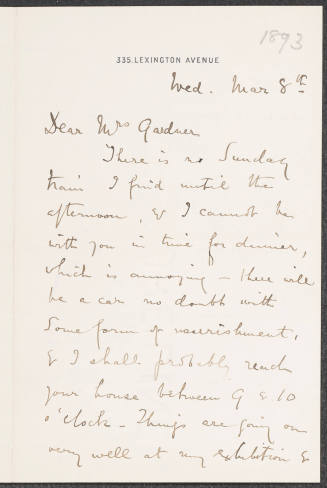 1893
335. LEXINGTON AVENUE
Wed. Mar 8th
Dear Mrs Gardner
There is no Sunday
train I find until the
afternoon, & I cannot be
with you in time for dinner,
which is annoying - there will
be a car no doubt with
some form of nourishment,
& I shall probably reach
your house between 9 & 10
o'clock - Things are going on
very well at my exhibition &